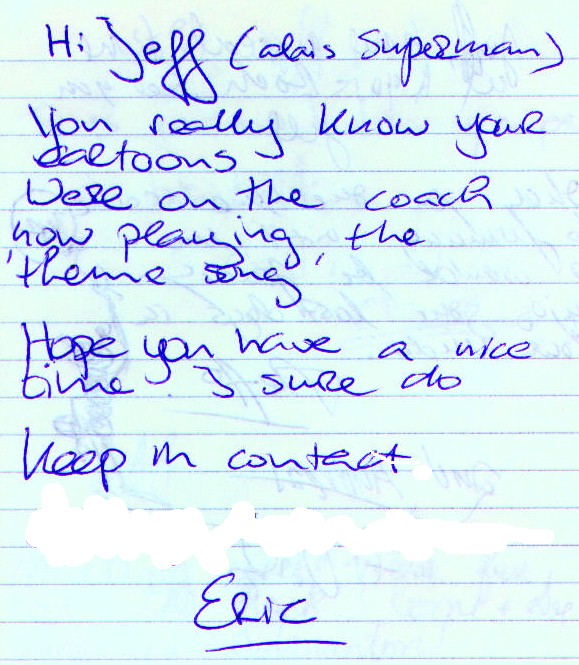 Hi Jeff (alais Superman)
You really know your
cartoons
Were on the coach
now playing, the
"theme song"
Hope you have a nice
time. I sure do
Keep in contact.
Eric